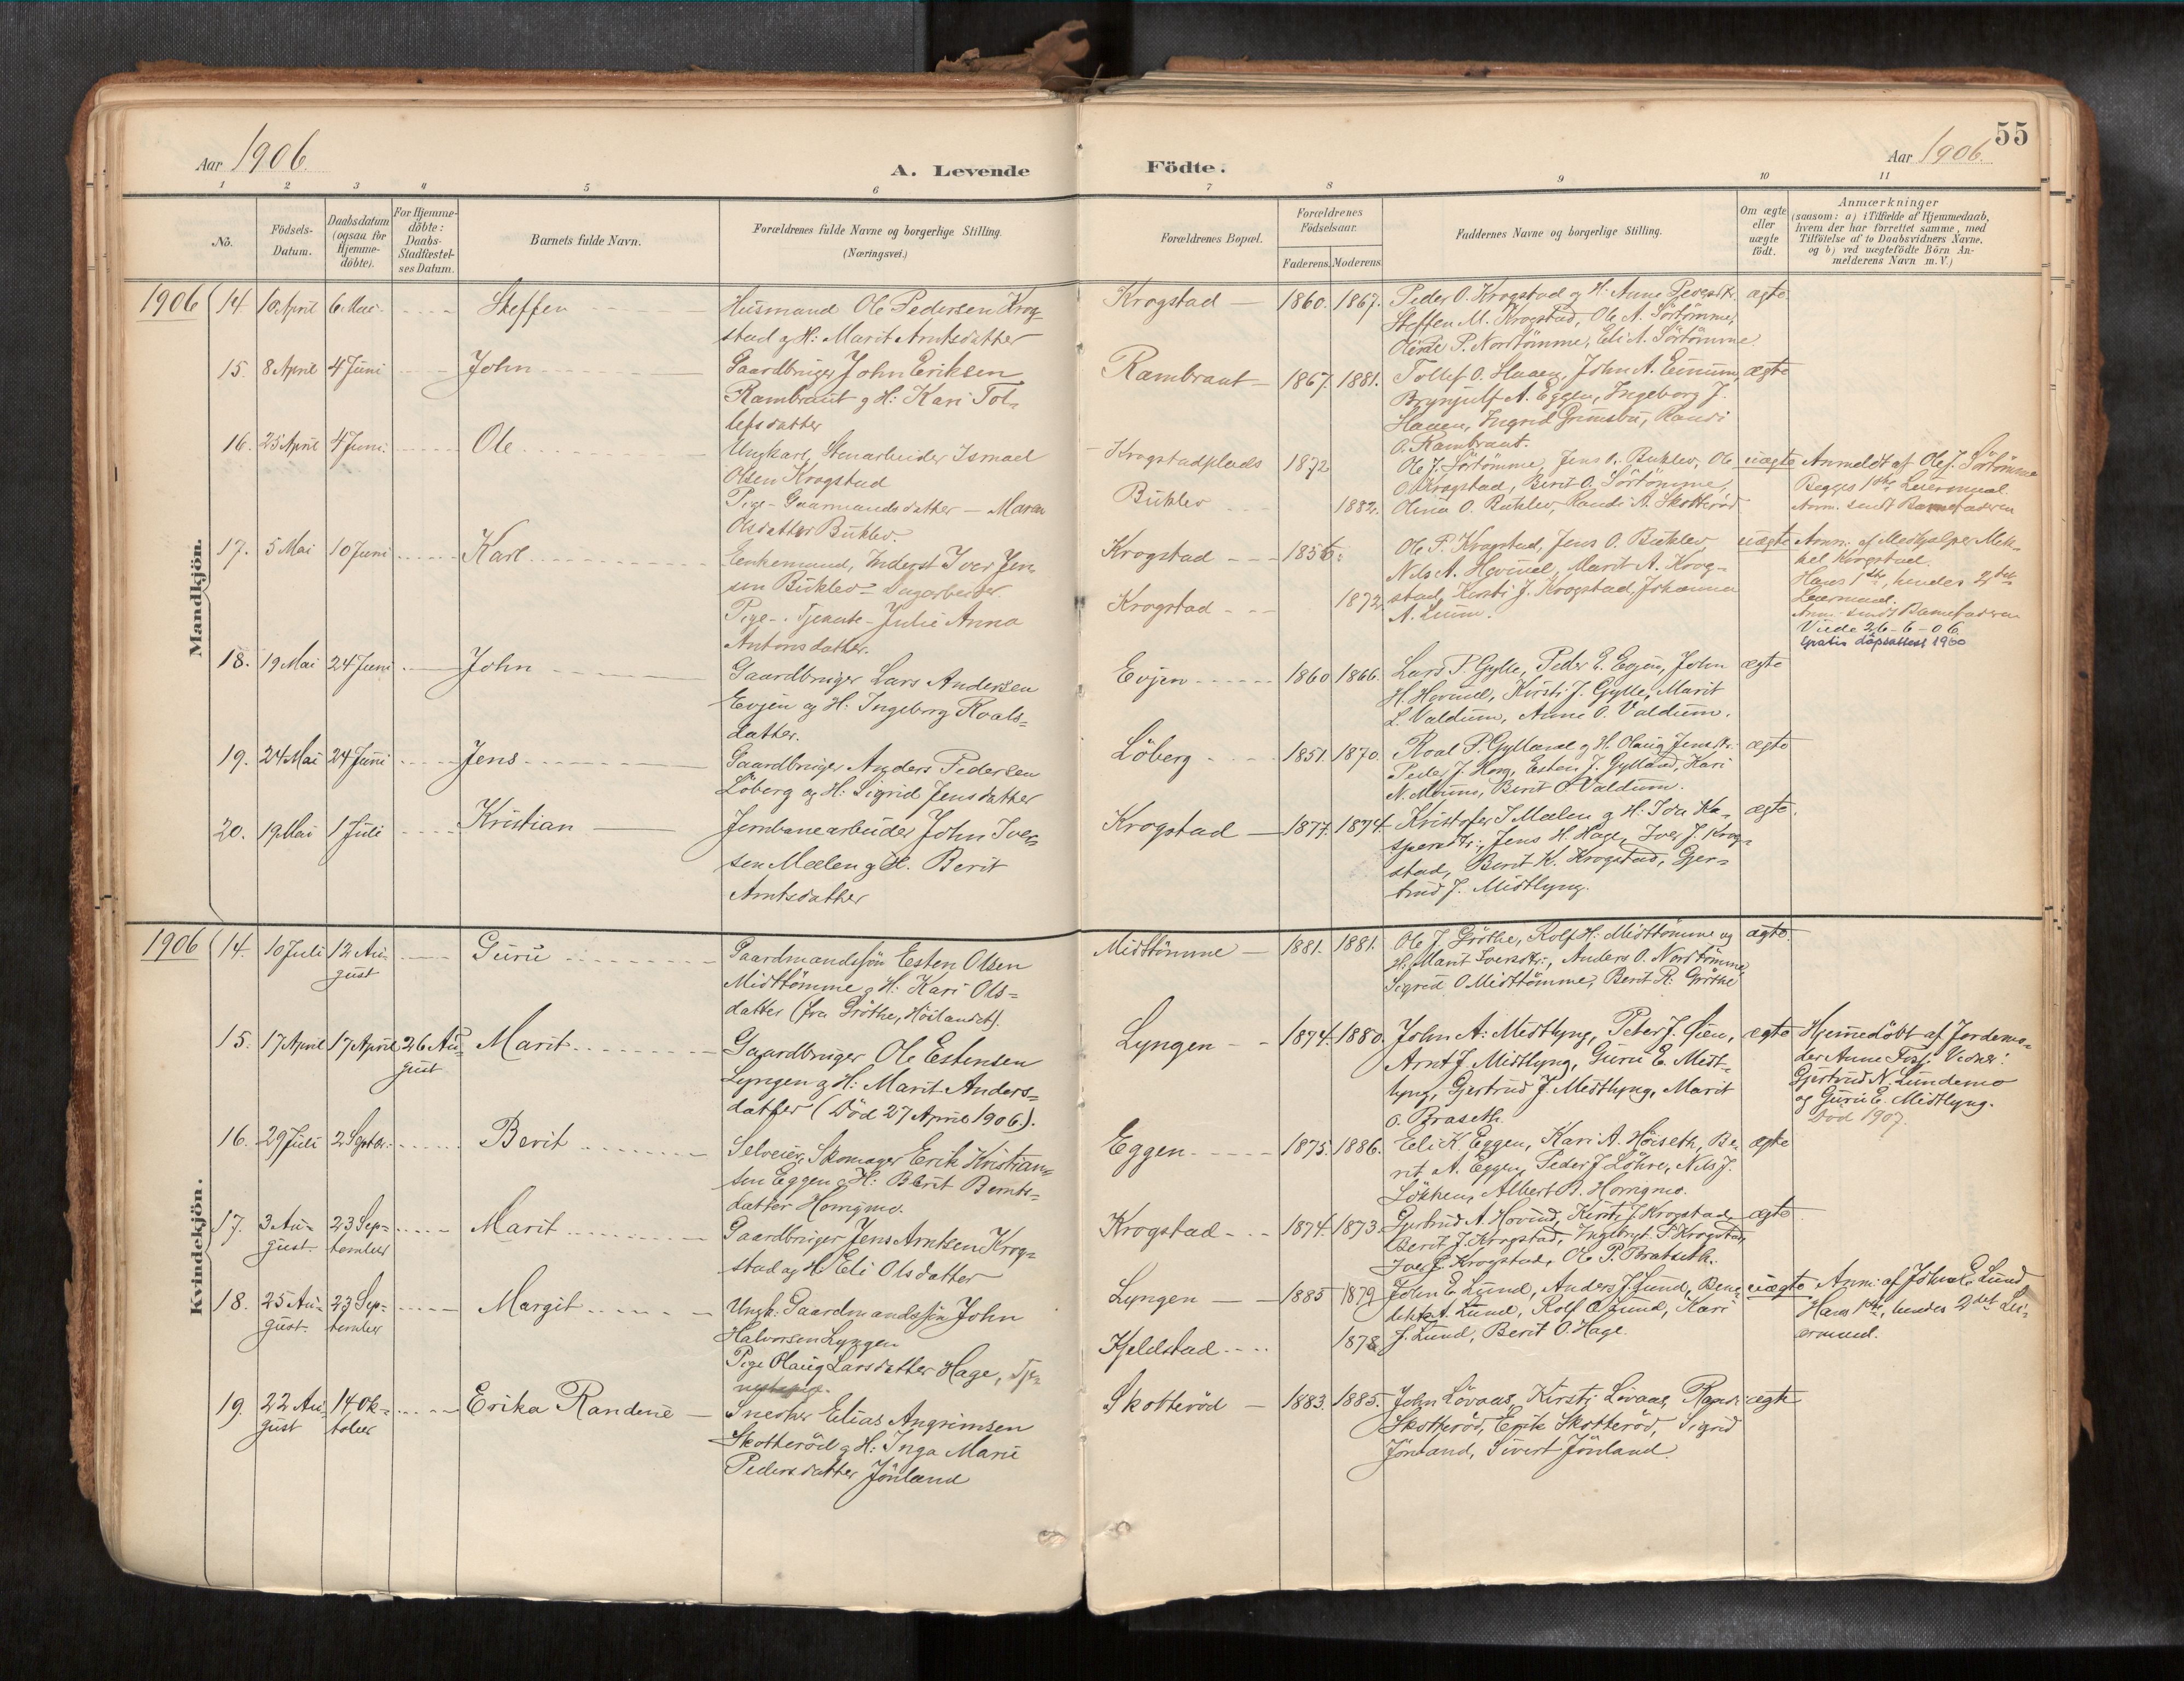 55
Aar 1906.
A. Levende Födte.
Aar 1906.
1 2 3 4 5 6 7 8 9 10 11
No.
Födsels-Datum.
Daabsdatum (ogsaa for Hjemme-döbte).
For Hjemme-döbte: Daabs-Stadfæstel-ses Datum.
Barnets fulde Navn.
Forældrenes fulde Navne og borgerlige Stilling.
(Næringsvei.)
Forældrenes Bopæl.
Forældrenes Födselsaar.
Faderens. Moderens
Faddernes Navne og borgerlige Stilling.
Om ægte eller uægte födt.
Anmærkninger
(saasom: a) i Tilfælde af Hjemmedaab,
hvem der har forrettet samme, med
Tilföielse af to Daabsvidners Navne,
og b) ved uegtefödte Börn An-
melderens Navn m. V.)
Mandkjön.
1906 14. 10 April 6 Mai Steffen
Husmand Ole Pedersen Krog-
stad og H: Marit Arntsdatter
Krogstad 1860. 1867.
Peder O. Krogstad og H: Anne
Steffen M. Krogstad, Ole A. Sörtömme,
P. Nordtömme, Eli A. Sörtömme
ægte
15. 8 April 4 Juni John
Gaardbruger John Eriksen
Rambraut og H: Kari Tol-
lefsdatter
Rambraut 1867. 1881.
Tollef O. Haaen, John A.
Brynjulf A. Eggen, Ingeborg J.
Haaen, Ingrid Grimsbu, Randi
O. Rambraut.
ægte
16. 25 April 4 Juni. Ole
Ungkarl, Stenarbeider Ismael
Olsen Krogstad
Pige - Gaarmandsdatter - Maren
Olsdatter Buklev.
Krogstadplads 1872
Buklev 1882.
Ole J. Sörtömme, Jens O. Buklev, Ole
O. Krogstad, Berit O. Sörtömme,
Olina O. Buklev, Randi A. Skotteröd
uægte
Anmeldt af Ole J. Sörtömme
Begges 1ste Leiermaal.
Anm. sendt Barnefaderen
17. 5 Mai 10 Juni Karl
Enkemand, Inderst Iver Jen-
sen Buklev - Dagarbeider.
Pige - Tjeneste - Julie Anna
Antonsdatter.
Krogstad 1856.
Krogstad 1872
Ole P. Krogstad, Jens O. Buklev
Nils A. Hovind, Marit A. Krog-
stad, Kirsti J. Krogstad, Johanna
A. Luum.
uægte
Anm. af Medhjelper Mek-
kel Krogstad.
Hans 1ste, hendes 2det
Leiermaal.
Anm. sendt Barnefaderen
Viede 26-6-06
Gratis dåpsattest 1960
18. 19 Mai 24 Juni John
Gaardbruger Lars Andersen
Evjen og H: Ingeborg Roals-
datter.
Evjen 1860 1866.
Lars P. Gylle, Peder E. Evjen, John
H. Hovind, Kirsti J. Gylle, Marit
L. Valdum, Anne O. Valdum.
ægte
19. 24 Mai 24 Juni Jens
Gaardbruger Anders Pedersen
Löberg og H: Sigrid Jensdatter
Löberg 1851. 1870.
Roal P. Gylland og H. Olaug Jensdtr.
Peder J. Horg, Esten J. Gylland, Kari
N. Moum, Berit O. Valdum.
ægte
20. 19 Mai 1 Juli Kristian
Jernbanearbeider John Iver-
sen Mælen og H. Berit
Arntsdatter
Krogstad 1877. 1874.
Kristofer I Mælen og H. Ida Ka-
spersdtr., Jens H. Hage, Iver J. Krog-
stad, Berit K. Krogstad, Gjer-
trud J. Midtlyng.
ægte.
Kvindekjön.
1906 14. 10 Juli 12 Au-
gust Guru
Gaardmandssön Esten Olsen
Midttömme og H: Kari Ols-
datter (fra Gröthe, Höilandet).
Midttömme 1881. 1881.
Ole J. Gröthe, Rolf H. Midttömme og
H: Marit Iversdtr., Anders O. Nordtömme,
Sigrid O Midttömme, Berit R. Gröthe
ægte.
15. 17 April 17 April 26 Au-
gust Marit
Gaardbruger Ole Estensen
Lyngen og H: Marit Anders-
datter (Död 27 April 1906).
Lyngen 1874. 1880.
John A. Midtlyng, Peter J. Öien,
Arnt J. Midtlyng, Guru E. Midt-
lyng, Gjertrud J. Midtlyng, Marit
O. Braseth.
ægte
Hjemmedöbt af Jordemo-
der Anne Vidner:
Gjertrud N. Lundemo
og Guru E. Midtlyng.
Död 1907.
16. 29 Juli 2 Septbr. Berit
Selveier, Skomager Erik Kristian-
sen Eggen og H: Berit Bernts-
datter Horrigmo.
Eggen 1875. 1886.
Eli K. Eggen, Kari A. Höiseth, Be-
rit A. Eggen, Peder J Löhre, Nils J.
Lökken, Albert B. Horrigmo.
ægte
17. 3 Au-
gust. 23 Sep-
tember Marit
Gaardbruger Jens Arntsen Krog-
stad og H Eli Olsdatter
Krogstad 1874. 1873.
Gjertrud A. Hovind, Kirsti J. Krogstad
Berit J. Krogstad, Ingebrigt P. Krogstad,
Iver J. Krogstad, Ole P. Bratseth.
ægte
18. 25 Au-
gust. 23 Sep-
tember Margit
Ungk. Gaardmandssön John
Halvorsen Lyngen
Pige Olaug Larsdatter Hage, Tje-
Lyngen 1885 1879
Kjeldstad 1878
John E. Lund, Anders J. Lund, Bene-
dikte A. Lund, Rolf O. Lund, Kari
J. Lund, Berit O. Hage.
uægte
Anm. af John E. Lund
Hans 1ste, hendes 2det Lei-
ermaal.
19. 22 Au-
gust 14 Ok-
tober Erika Randine
Snedker Elias Angrimsen
Skotteröd og H: Inga Marie
Pedersdatter Jönland
Skotteröd 1883. 1885.
John Lövaas, Kirsti Lövaas, Randi
Skotteröd, Erik Skotteröd, Sigrid
Jönland, Sivert Jönland.
ægte